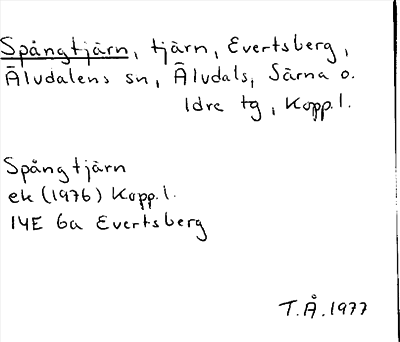 Spångtjärn, tjärn, Evertsberg,
Älvdalens sn, Älvdals, Särna o.
Idre tg, Kopp.l.
Spångtjärn
ek (1976) Kopp.l.
14E 6a Evertsberg
T.Å.1977